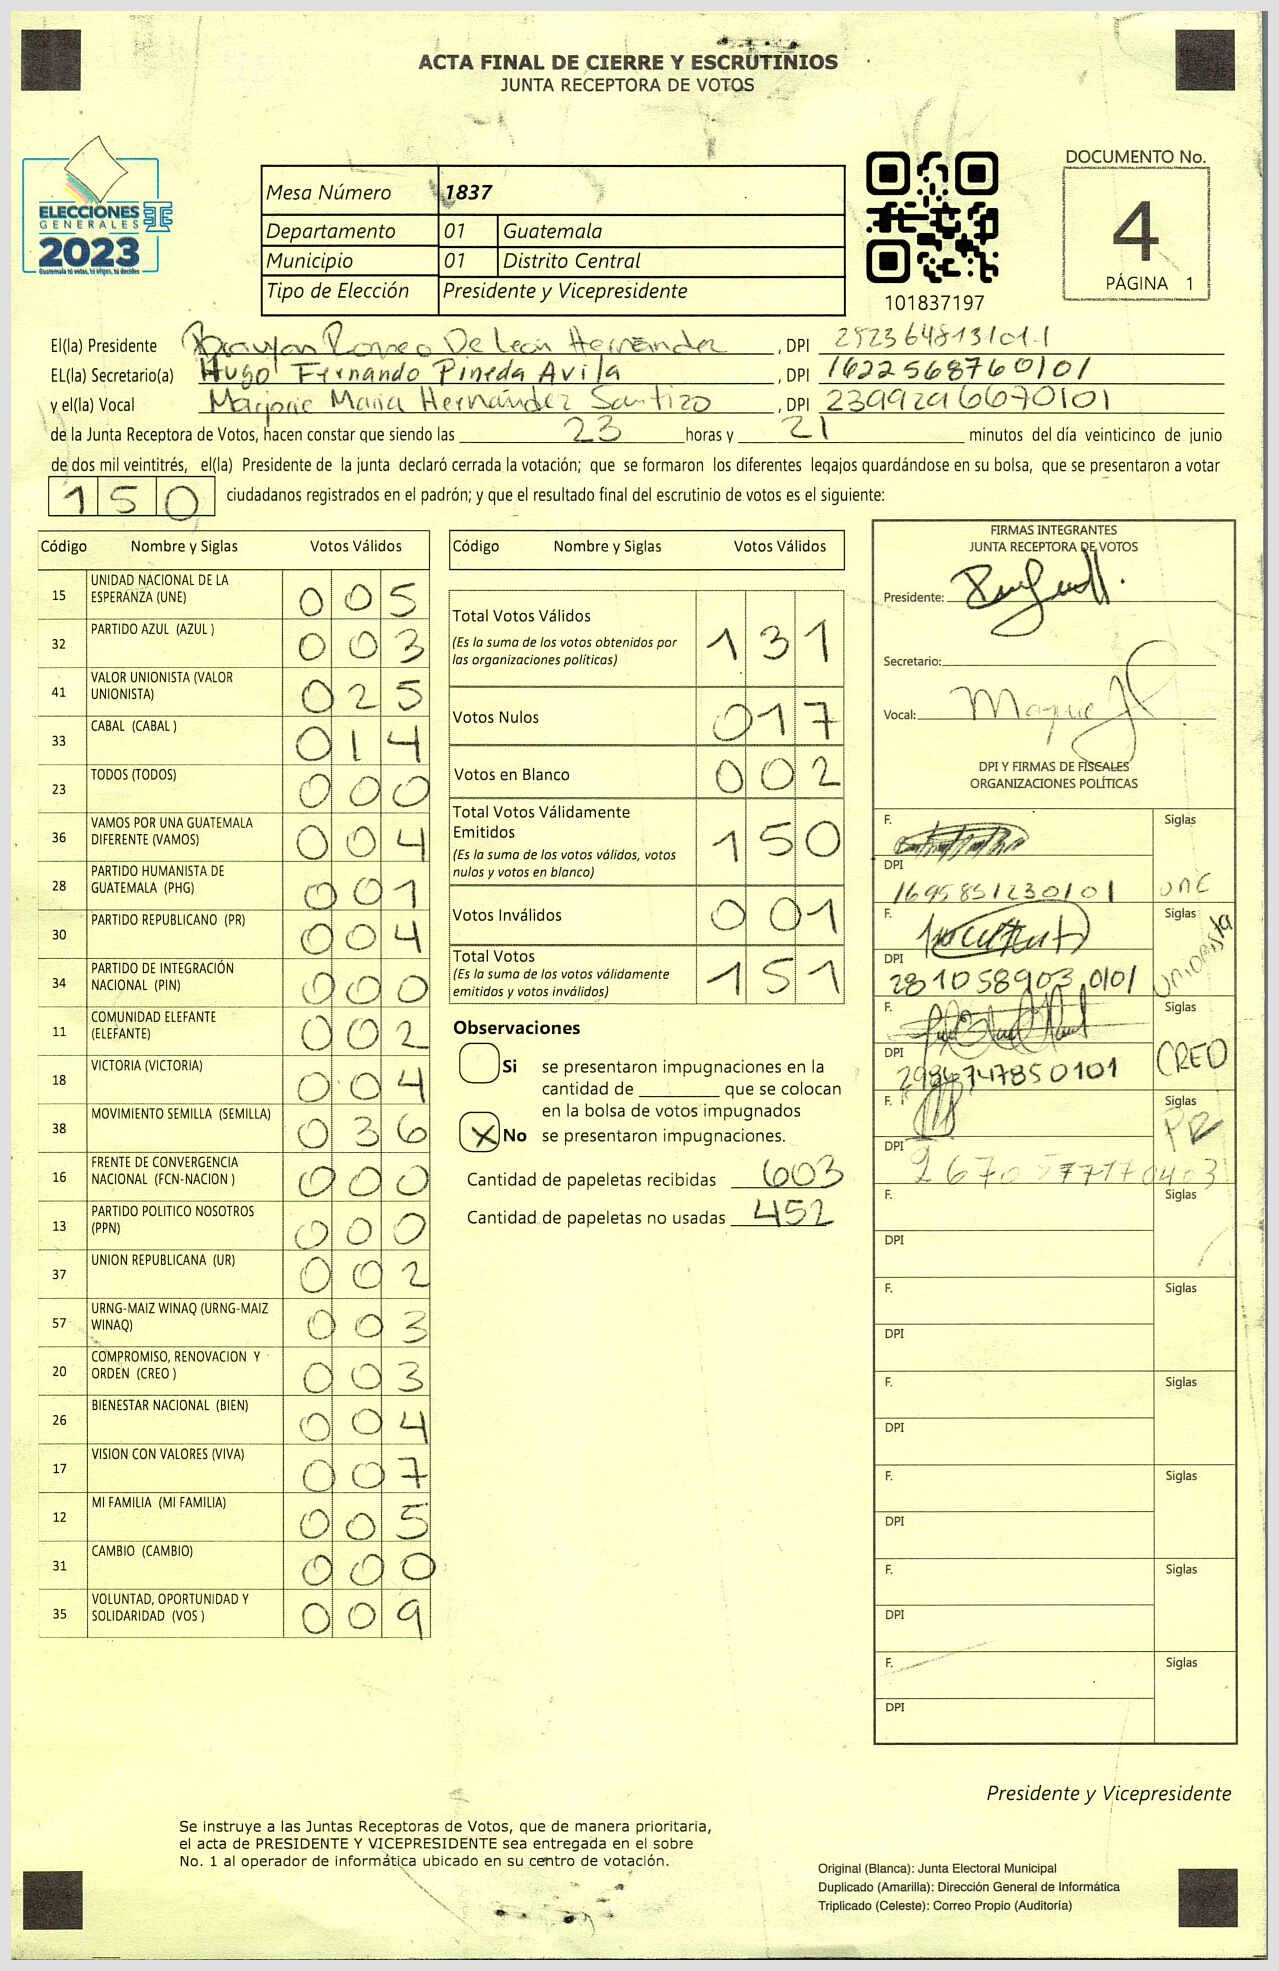 ACTA FINAL DE CIERRE Y ESCRUTINIOS
JUNTA RECEPTORA DE VOTOS
ELECCIONES
GENERALES
2023
Guatemala tú votas, tú eliges, tú decides
Mesa Número 1837
Departamento 01 Guatemala
Municipio 01 Distrito Central
Tipo de Elección Presidente y Vicepresidente
101837197
DOCUMENTO No.
4
PÁGINA 1
El(la) Presidente Brayan Romeo De León Hernández , DPI
EL(la) Secretario(a) Hugo Fernando Pineda Avila , DPI 1622568760101
y el(la) Vocal Marjorie Maria Hernández Santizo , DPI 2399296670101
de la Junta Receptora de Votos, hacen constar que siendo las 23 horas y 21 minutos del día veinticinco de junio
de dos mil veintitrés, el(la) Presidente de la junta declaró cerrada la votación; que se formaron los diferentes legajos guardándose en su bolsa, que se presentaron a votar
150 ciudadanos registrados en el padrón; y que el resultado final del escrutinio de votos es el siguiente:
Código Nombre y Siglas Votos Válidos
15 UNIDAD NACIONAL DE LA ESPERANZA (UNE) 005
32 PARTIDO AZUL (AZUL ) 003
41 VALOR UNIONISTA (VALOR UNIONISTA) 025
33 CABAL (CABAL ) 014
23 TODOS (TODOS) 000
36 VAMOS POR UNA GUATEMALA DIFERENTE (VAMOS) 004
28 PARTIDO HUMANISTA DE GUATEMALA (PHG) 001
30 PARTIDO REPUBLICANO (PR) 004
34 PARTIDO DE INTEGRACIÓN NACIONAL (PIN) 000
11 COMUNIDAD ELEFANTE (ELEFANTE) 002
18 VICTORIA (VICTORIA) 004
38 MOVIMIENTO SEMILLA (SEMILLA) 036
16 FRENTE DE CONVERGENCIA NACIONAL (FCN-NACION ) 000
13 PARTIDO POLITICO NOSOTROS (PPN) 000
37 UNION REPUBLICANA (UR) 002
57 URNG-MAIZ WINAQ (URNG-MAIZ WINAQ) 003
20 COMPROMISO, RENOVACION Y ORDEN (CREO ) 003
26 BIENESTAR NACIONAL (BIEN) 004
17 VISION CON VALORES (VIVA) 007
12 MI FAMILIA (MI FAMILIA) 005
31 CAMBIO (CAMBIO) 000
35 VOLUNTAD, OPORTUNIDAD Y SOLIDARIDAD (VOS ) 009
Código Nombre y Siglas Votos Válidos
Total Votos Válidos 131
(Es la suma de los votos obtenidos por
las organizaciones políticas)
Votos Nulos 017
Votos en Blanco 002
Total Votos Válidamente
Emitidos 150
(Es la suma de los votos válidos, votos
nulos y votos en blanco)
Votos Inválidos 001
Total Votos 151
(Es la suma de los votos válidamente
emitidos y votos inválidos)
Observaciones
Si se presentaron impugnaciones en la
cantidad de ________ que se colocan
en la bolsa de votos impugnados
X No se presentaron impugnaciones.
Cantidad de papeletas recibidas 603
Cantidad de papeletas no usadas 452
FIRMAS INTEGRANTES
JUNTA RECEPTORA DE VOTOS
Presidente:
Secretario:
Vocal:
DPI Y FIRMAS DE FISCALES
ORGANIZACIONES POLÍTICAS
F. Siglas
DPI
1695851230101
F. Siglas Unionista
DPI
2810589030101
F. Siglas
DPI CREO
2984747850101
F. Siglas
PR
DPI
F. Siglas
DPI
F. Siglas
DPI
F. Siglas
DPI
F. Siglas
DPI
F. Siglas
DPI
F. Siglas
DPI
Presidente y Vicepresidente
Se instruye a las Juntas Receptoras de Votos, que de manera prioritaria,
el acta de PRESIDENTE Y VICEPRESIDENTE sea entregada en el sobre
No. 1 al operador de informática ubicado en su centro de votación.
Original (Blanca): Junta Electoral Municipal
Duplicado (Amarilla): Dirección General de Informática
Triplicado (Celeste): Correo Propio (Auditoría)